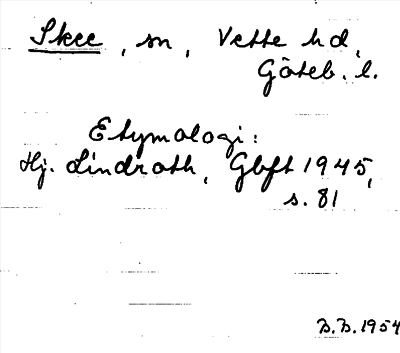 Skee, sn, Vette hd,
Göteb. l.
Etymologi:
Hj. Lindroth, Gbft 1945,
s. 81
B.B. 1954